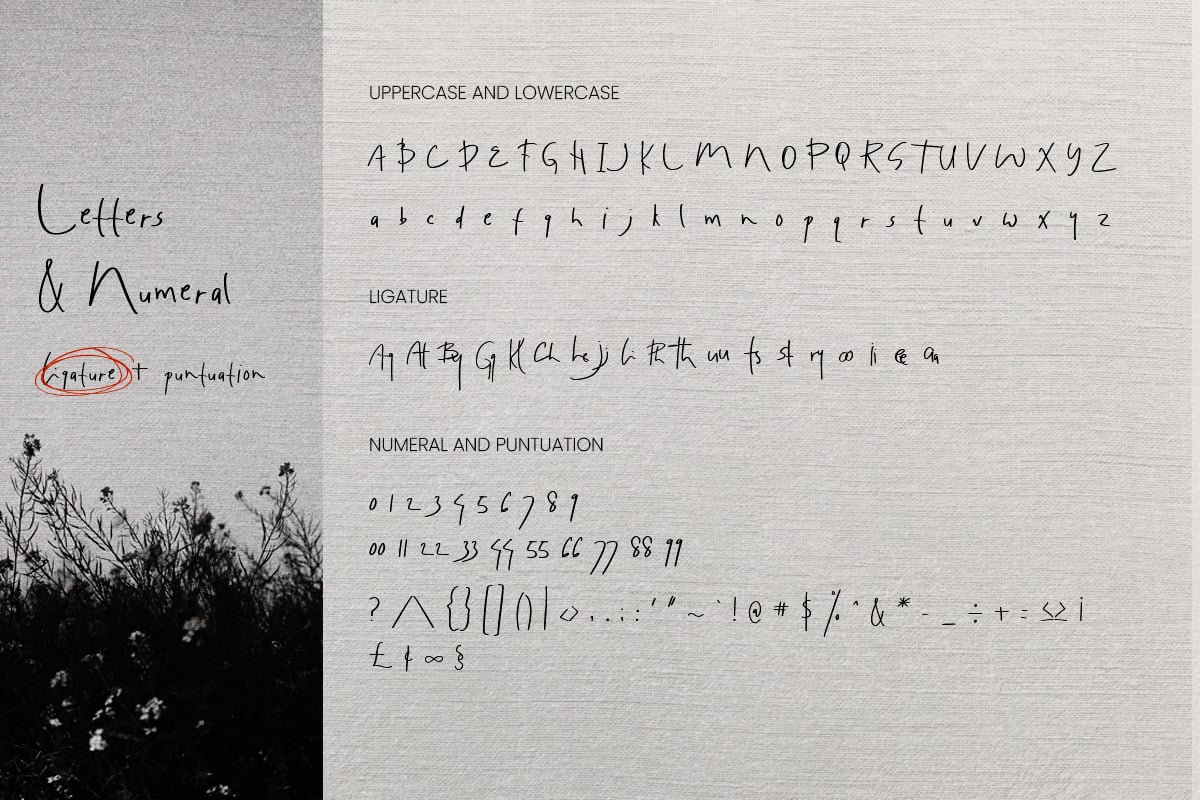 Letters
& Numeral
Ligature + puntuation
UPPERCASE AND LOWERCASE
A B C D E F G H I J K L M N O P Q R S T U V W X Y Z
a b c d e f g h i j k l m n o p q r s t u v w x y z
LIGATURE
Ag At Be Gg Kl Ch he jj li Th uu ts st ry oo ii ee aa
NUMERAL AND PUNTUATION
0 1 2 3 4 5 6 7 8 9
00 11 22 33 44 55 66 77 88 99
? / \ { } [ ] ( ) | < > , . ; : ' " ~ ` ! @ # $ % ^ & * - _ ÷ + = ≤ ≥ ¡
£ ¢ ∞ §